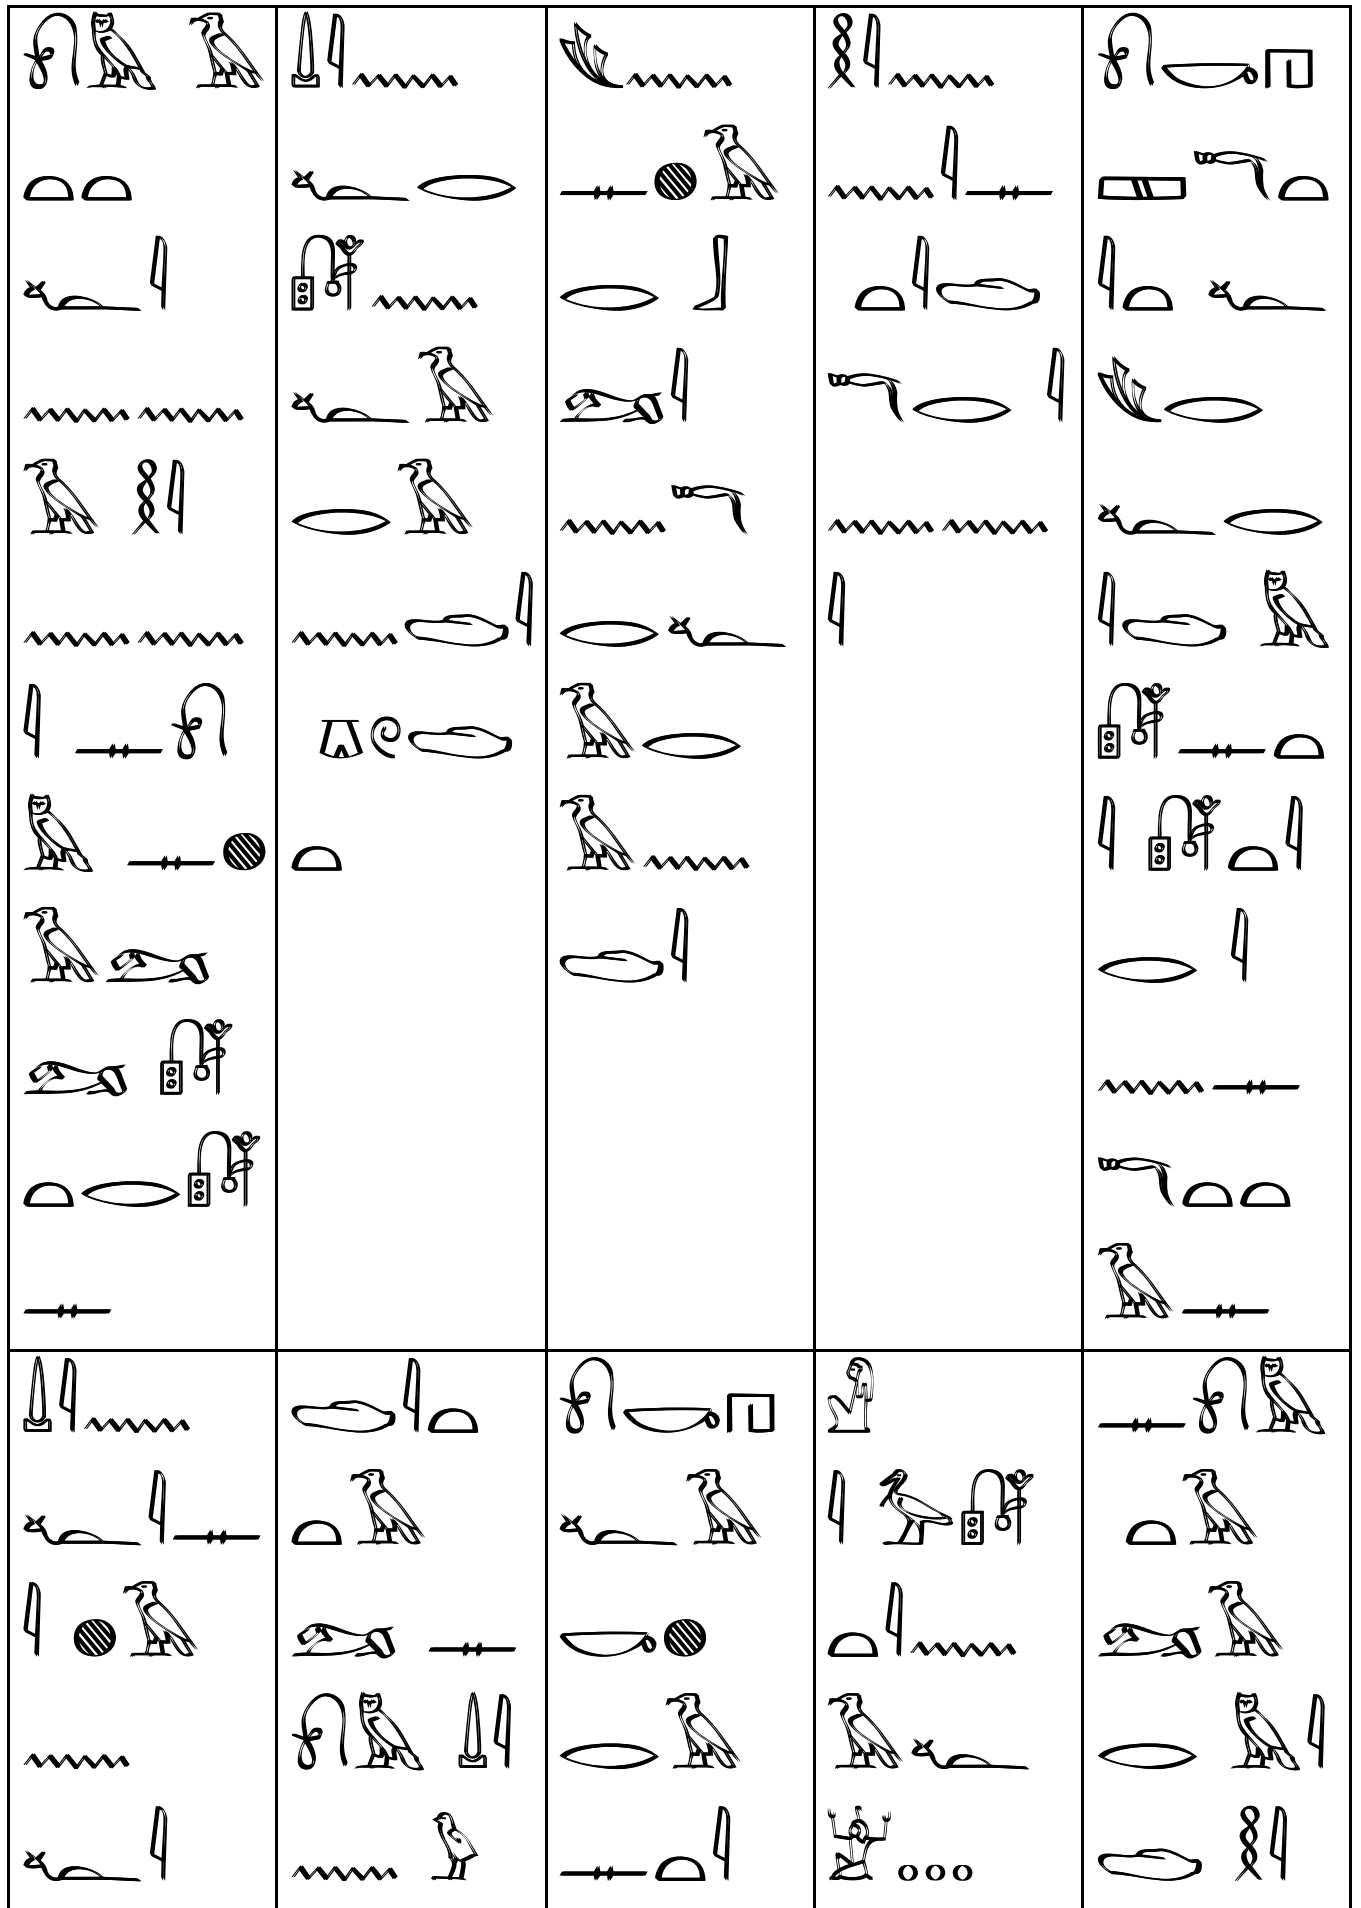 𓍯𓅓 𓄿
𓏏𓏏
𓆑𓇋
𓈖𓈖
𓄿 𓎛𓇋
𓈖𓈖
𓇋 𓊃𓍯
𓅓 𓊃𓐍
𓄿𓃭
𓃭 𓏞
𓏏𓂋𓏞
𓊃
𓏙𓇋𓈖
𓆑𓂋
𓏞𓈖
𓆑𓄿
𓂋𓄿
𓈖𓂧𓇋
𓎼𓏲𓂧
𓏏
𓄟𓈖
𓊃𓐍𓄿
𓂋 𓃀
𓃭𓇋
𓈖𓄡
𓂋𓆑
𓄿𓂋
𓄿𓈖
𓂧𓇋
𓎛𓇋𓈖
𓈖𓇋𓊃
𓏏𓇋𓂧
𓄡𓂋 𓇋
𓈖𓈖
𓇋
𓍯𓎡𓉔
𓈙𓄡𓏏
𓇋𓏏 𓆑
𓄟𓂋
𓆑𓂋
𓇋𓂧 𓅓
𓏞𓊃𓏏
𓇋 𓏞𓏏𓇋
𓂋 𓇋
𓈖𓊃
𓄡𓏏𓏏
𓄿𓊃
𓏙𓇋𓈖
𓆑𓇋𓊃
𓇋 𓐍𓄿
𓈖
𓆑𓇋
𓂧𓇋𓏏
𓏏𓄿
𓃭 𓊃
𓍯𓅓 𓏙𓇋
𓈖 𓅱
𓍯𓎡𓉔
𓆑𓄿
𓎡𓐍
𓂋𓄿
𓊃𓏏𓇋
𓁐
𓇋 𓅡𓏞
𓏏𓇋𓈖
𓄿𓆑
𓁨𓈓
𓊃𓍯𓅓
𓏏𓄿
𓃭𓄿
𓂋 𓅓𓇋
𓂧 𓎛𓇋